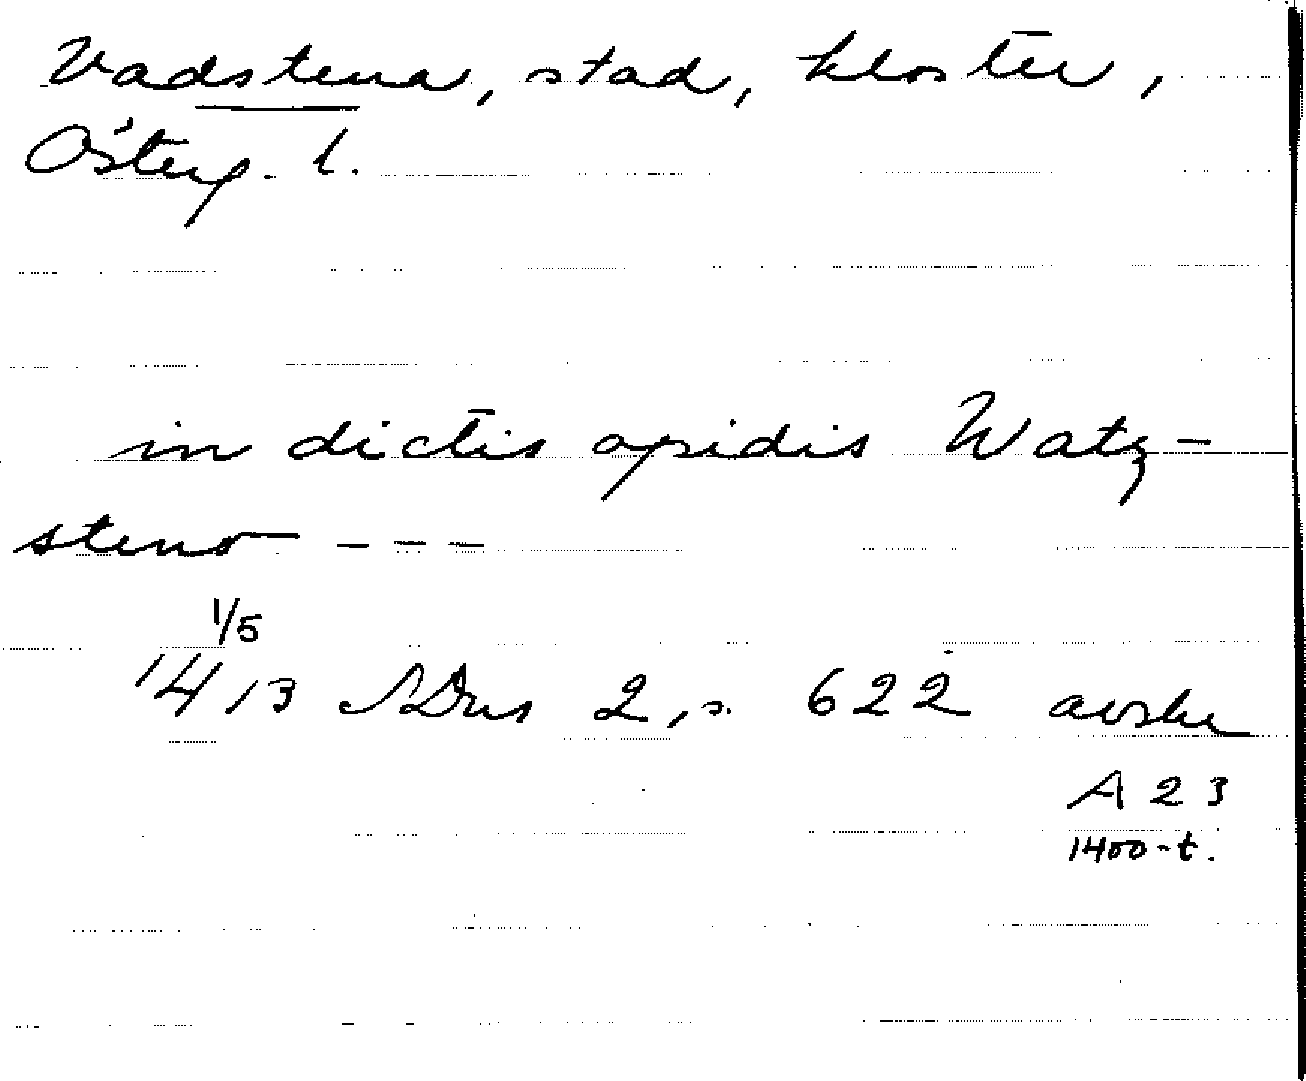 Vadstena, stad, kloster,
Österg. l.
in dictis opidis Watz-
steno - - -
1/5
1413 SDns 2, s. 622 avskr
A 23
1400-t.